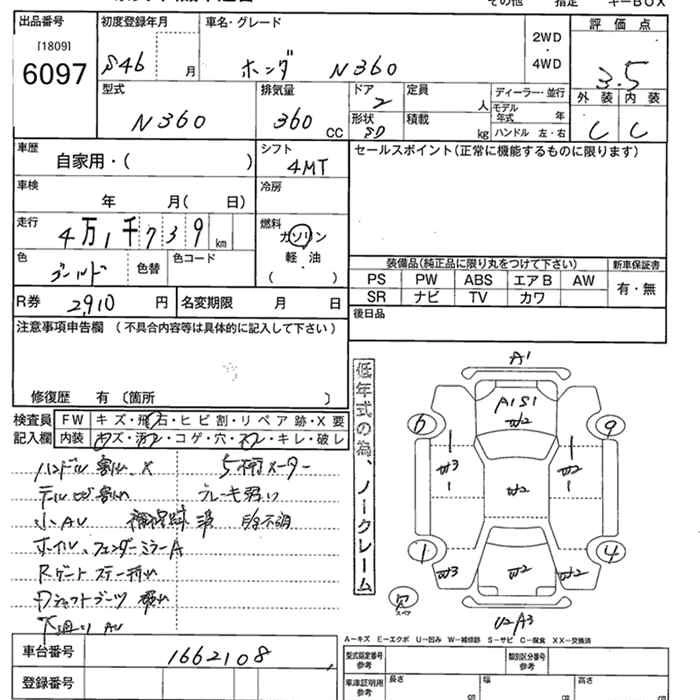 その他 指定 キーBOX
出品番号 初度登録年月 車名・グレード 2WD 評価点
[1809] ・
6097 S46 月 ホンダ N360 4WD 3.5
型式 排気量 ドア 定員 ディーラー・並行 外装 内装
N360 360 CC 2 人 モデル年式 年 C C
形状 積載 kg ハンドル 左・右
車歴 シフト セールスポイント(正常に機能するものに限ります)
自家用・( ) 4MT
車検 冷房
年 月( 日)
走行 燃料
4万1千739km ガソリン
色 色替 色コード 軽・油
ゴールド ( )
装備品(純正品に限り丸をつけて下さい) 新車保証書
PS PW ABS エアB AW 有・無
SR ナビ TV カワ
R券 2,910 円 名変期限 月 日 後日品
注意事項申告欄(不具合内容等は具体的に記入して下さい)
修復歴 有 〔箇所 〕
検査員 FW キズ・飛石・ヒビ割・リペア跡・X要
記入欄 内装 キズ・汚れ・コゲ・穴・スレ・キレ・破レ
ハンドル 割れ X 5桁メーター
ブレーキ弱い
小AU
ホイル、フェンダーミラーA
下廻り AU
低年式の為、ノークレーム
A1
A1S1
W2
6 9
W3 W2 W2
1 4
W3 W2 W2
スペア
U2A3
A−キズ E−エクボ U−凹み W−補修跡 S−サビ C−腐食 XX−交換済
車台番号 1662108 型式指定番号 参考 類別区分番号 参考
登録番号 車庫証明用 参考 長さ 幅 高さ